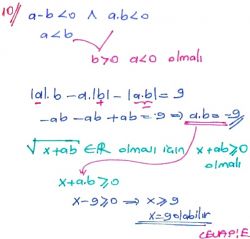 10// a-b<0 ∧ a.b<0
a<b
b>0 a<0 olmalı
|a|.b - a.|b| - |a.b| = 9
-ab - ab + ab = 9 ⇒ a.b = -9
√x+ab ∈ℝ olmalı için x+ab≥0
olmalı
x+a.b≥0
x-9≥0 ⇒ x≥9
x=9 olabilir
CEVAP:E